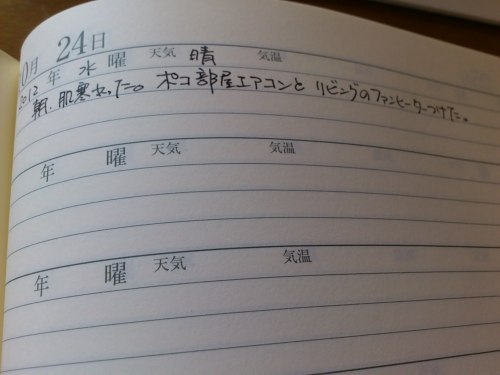 0月 24日
2012年 水曜 天気 晴 気温
朝、肌寒かった。ポコ部屋エアコンと リビングのファンヒーターつけた。
年 曜 天気 気温
年 曜 天気 気温